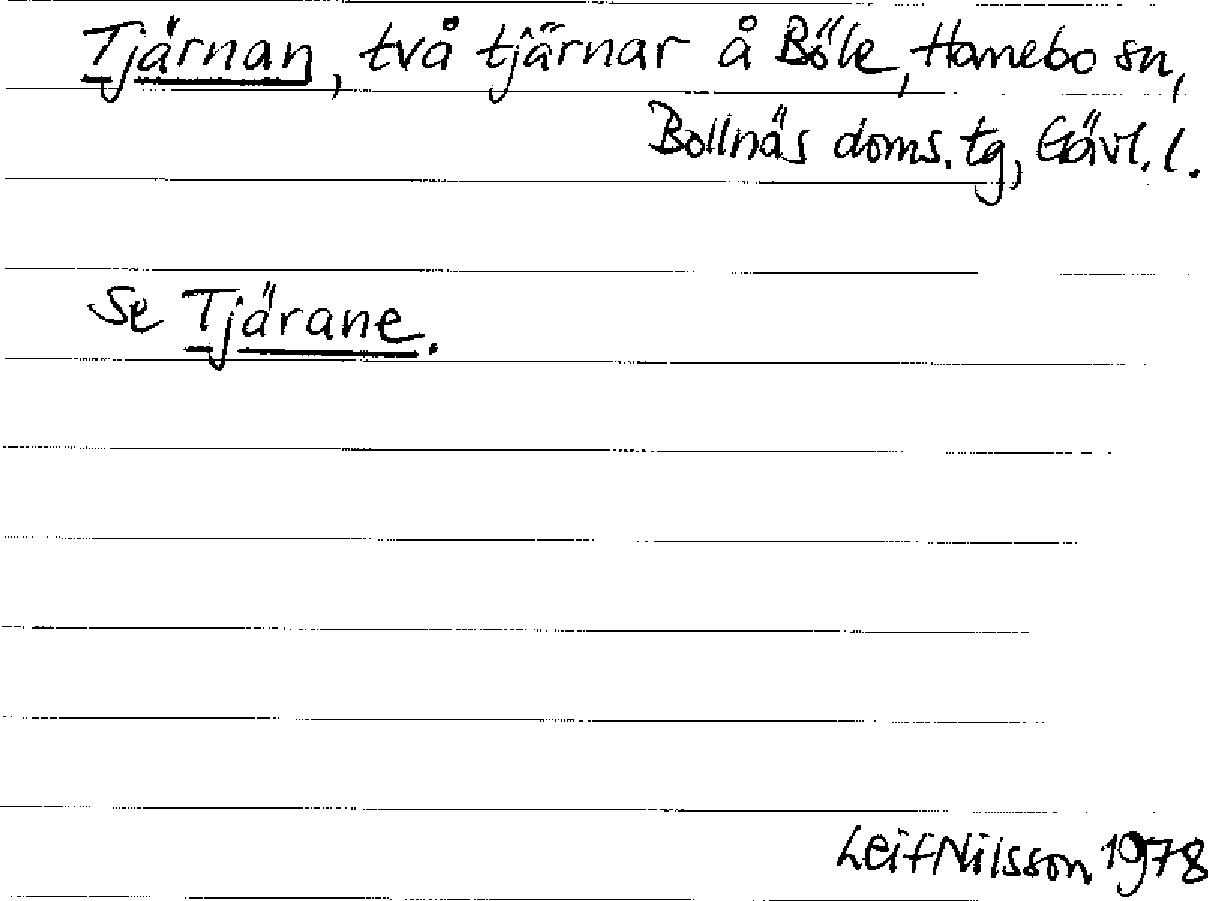 Tjärnan, två tjärnar å Böle, Hanebo sn,
Bollnäs doms. tg, Gävl. l.
Se Tjärane.
Leif Nilsson 1978